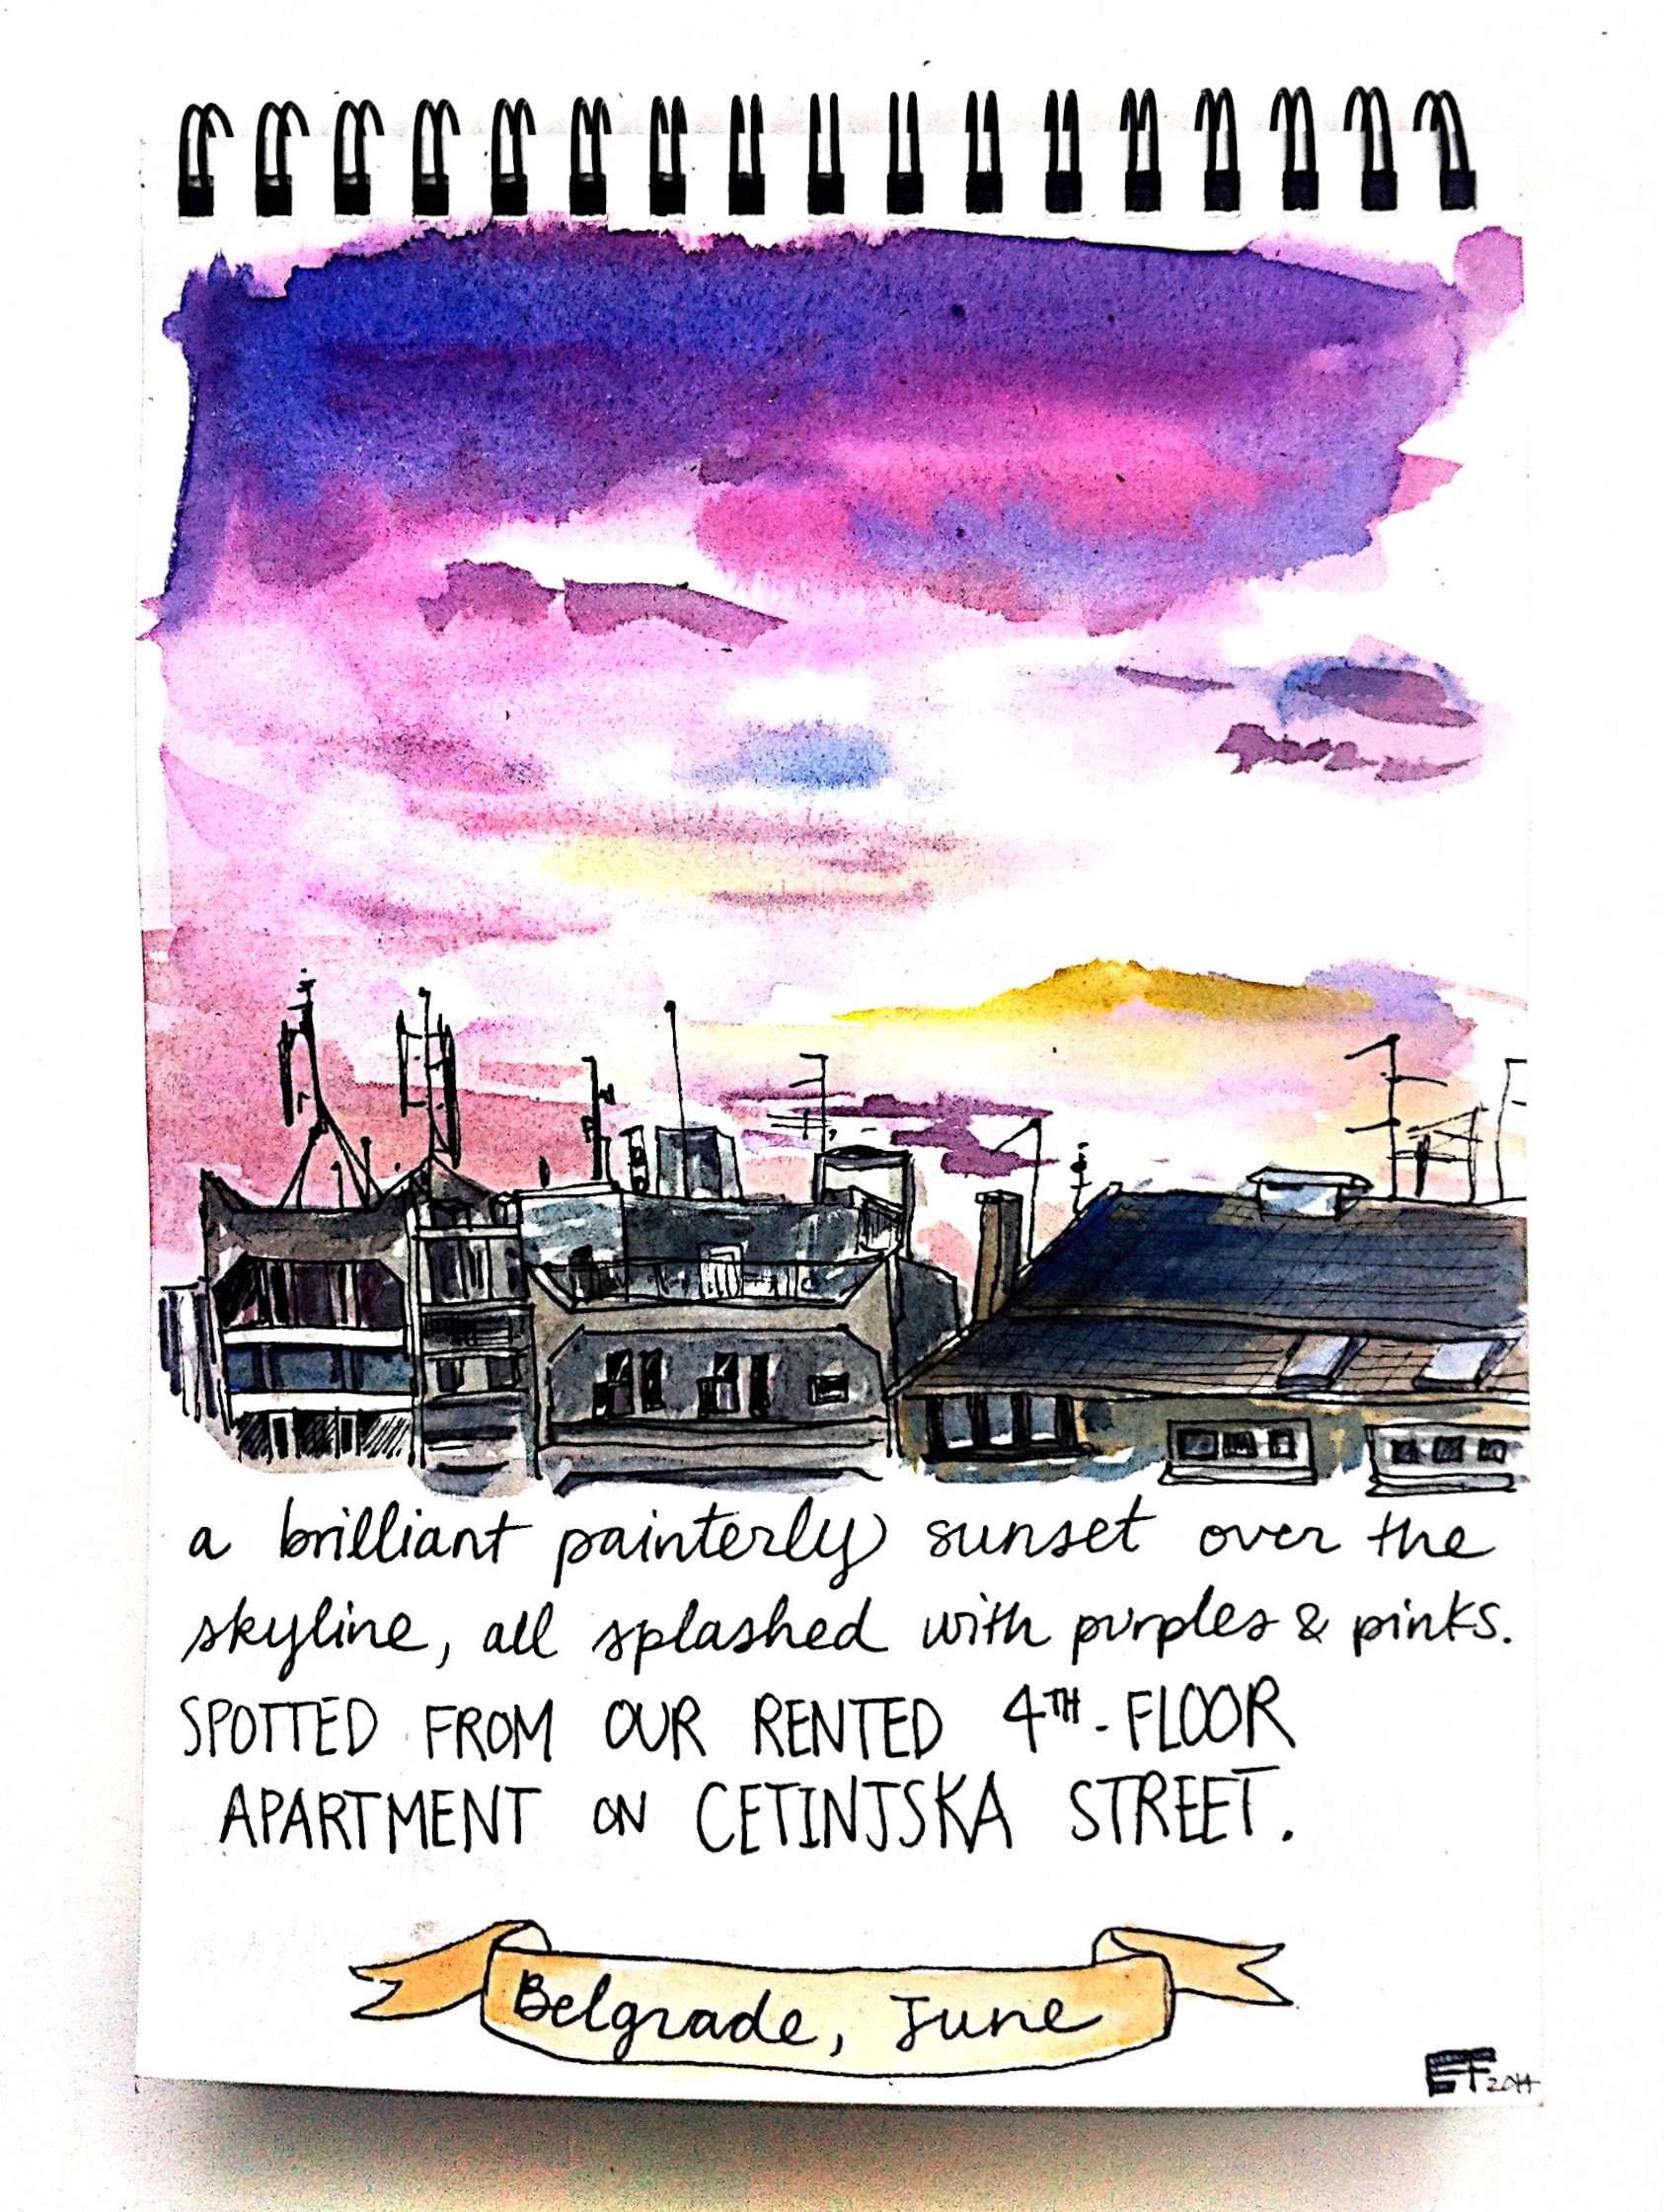 a brilliant painterly sunset over the
skyline, all splashed with purples & pinks.
SPOTTED FROM OUR RENTED 4TH-FLOOR
APARTMENT ON CETINJSKA STREET.
Belgrade, June
EF 2014